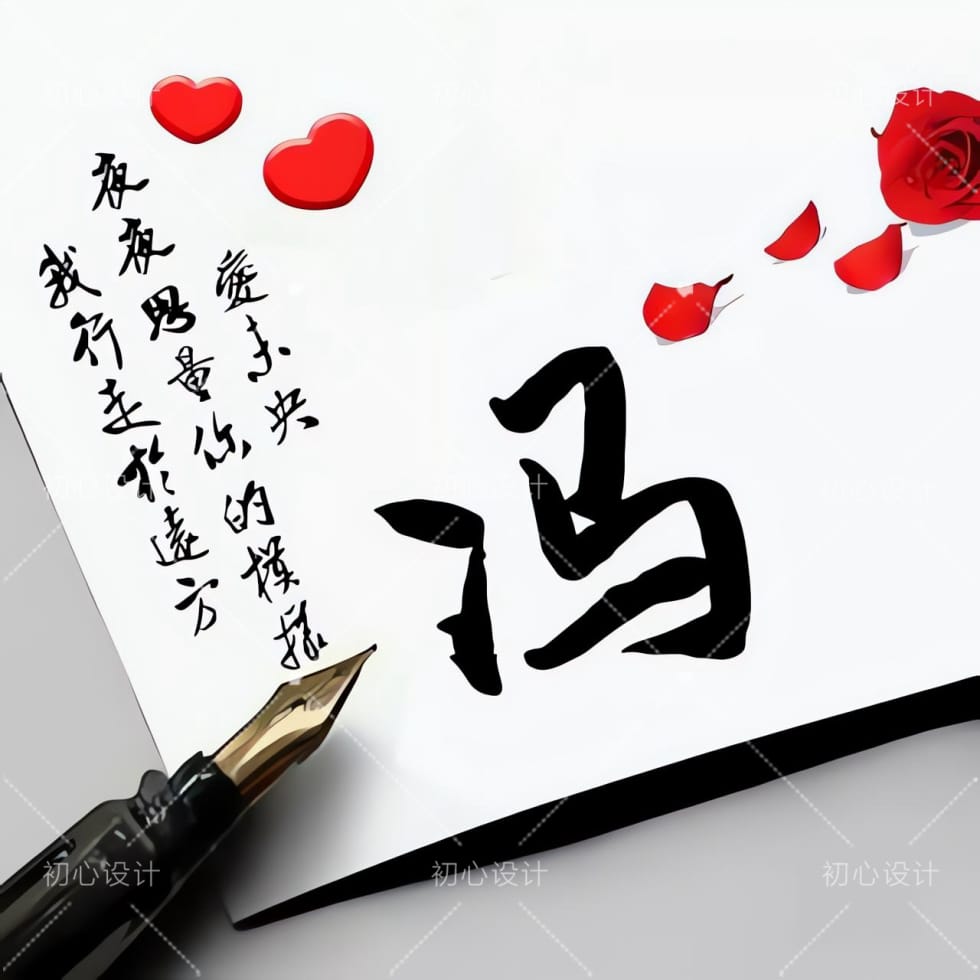 我行走於遠方
夜夜思量你的模樣
愛未央
冯
初心设计
初心设计
初心设计
初心设计
初心设计
初心设计
初心设计
初心设计
初心设计